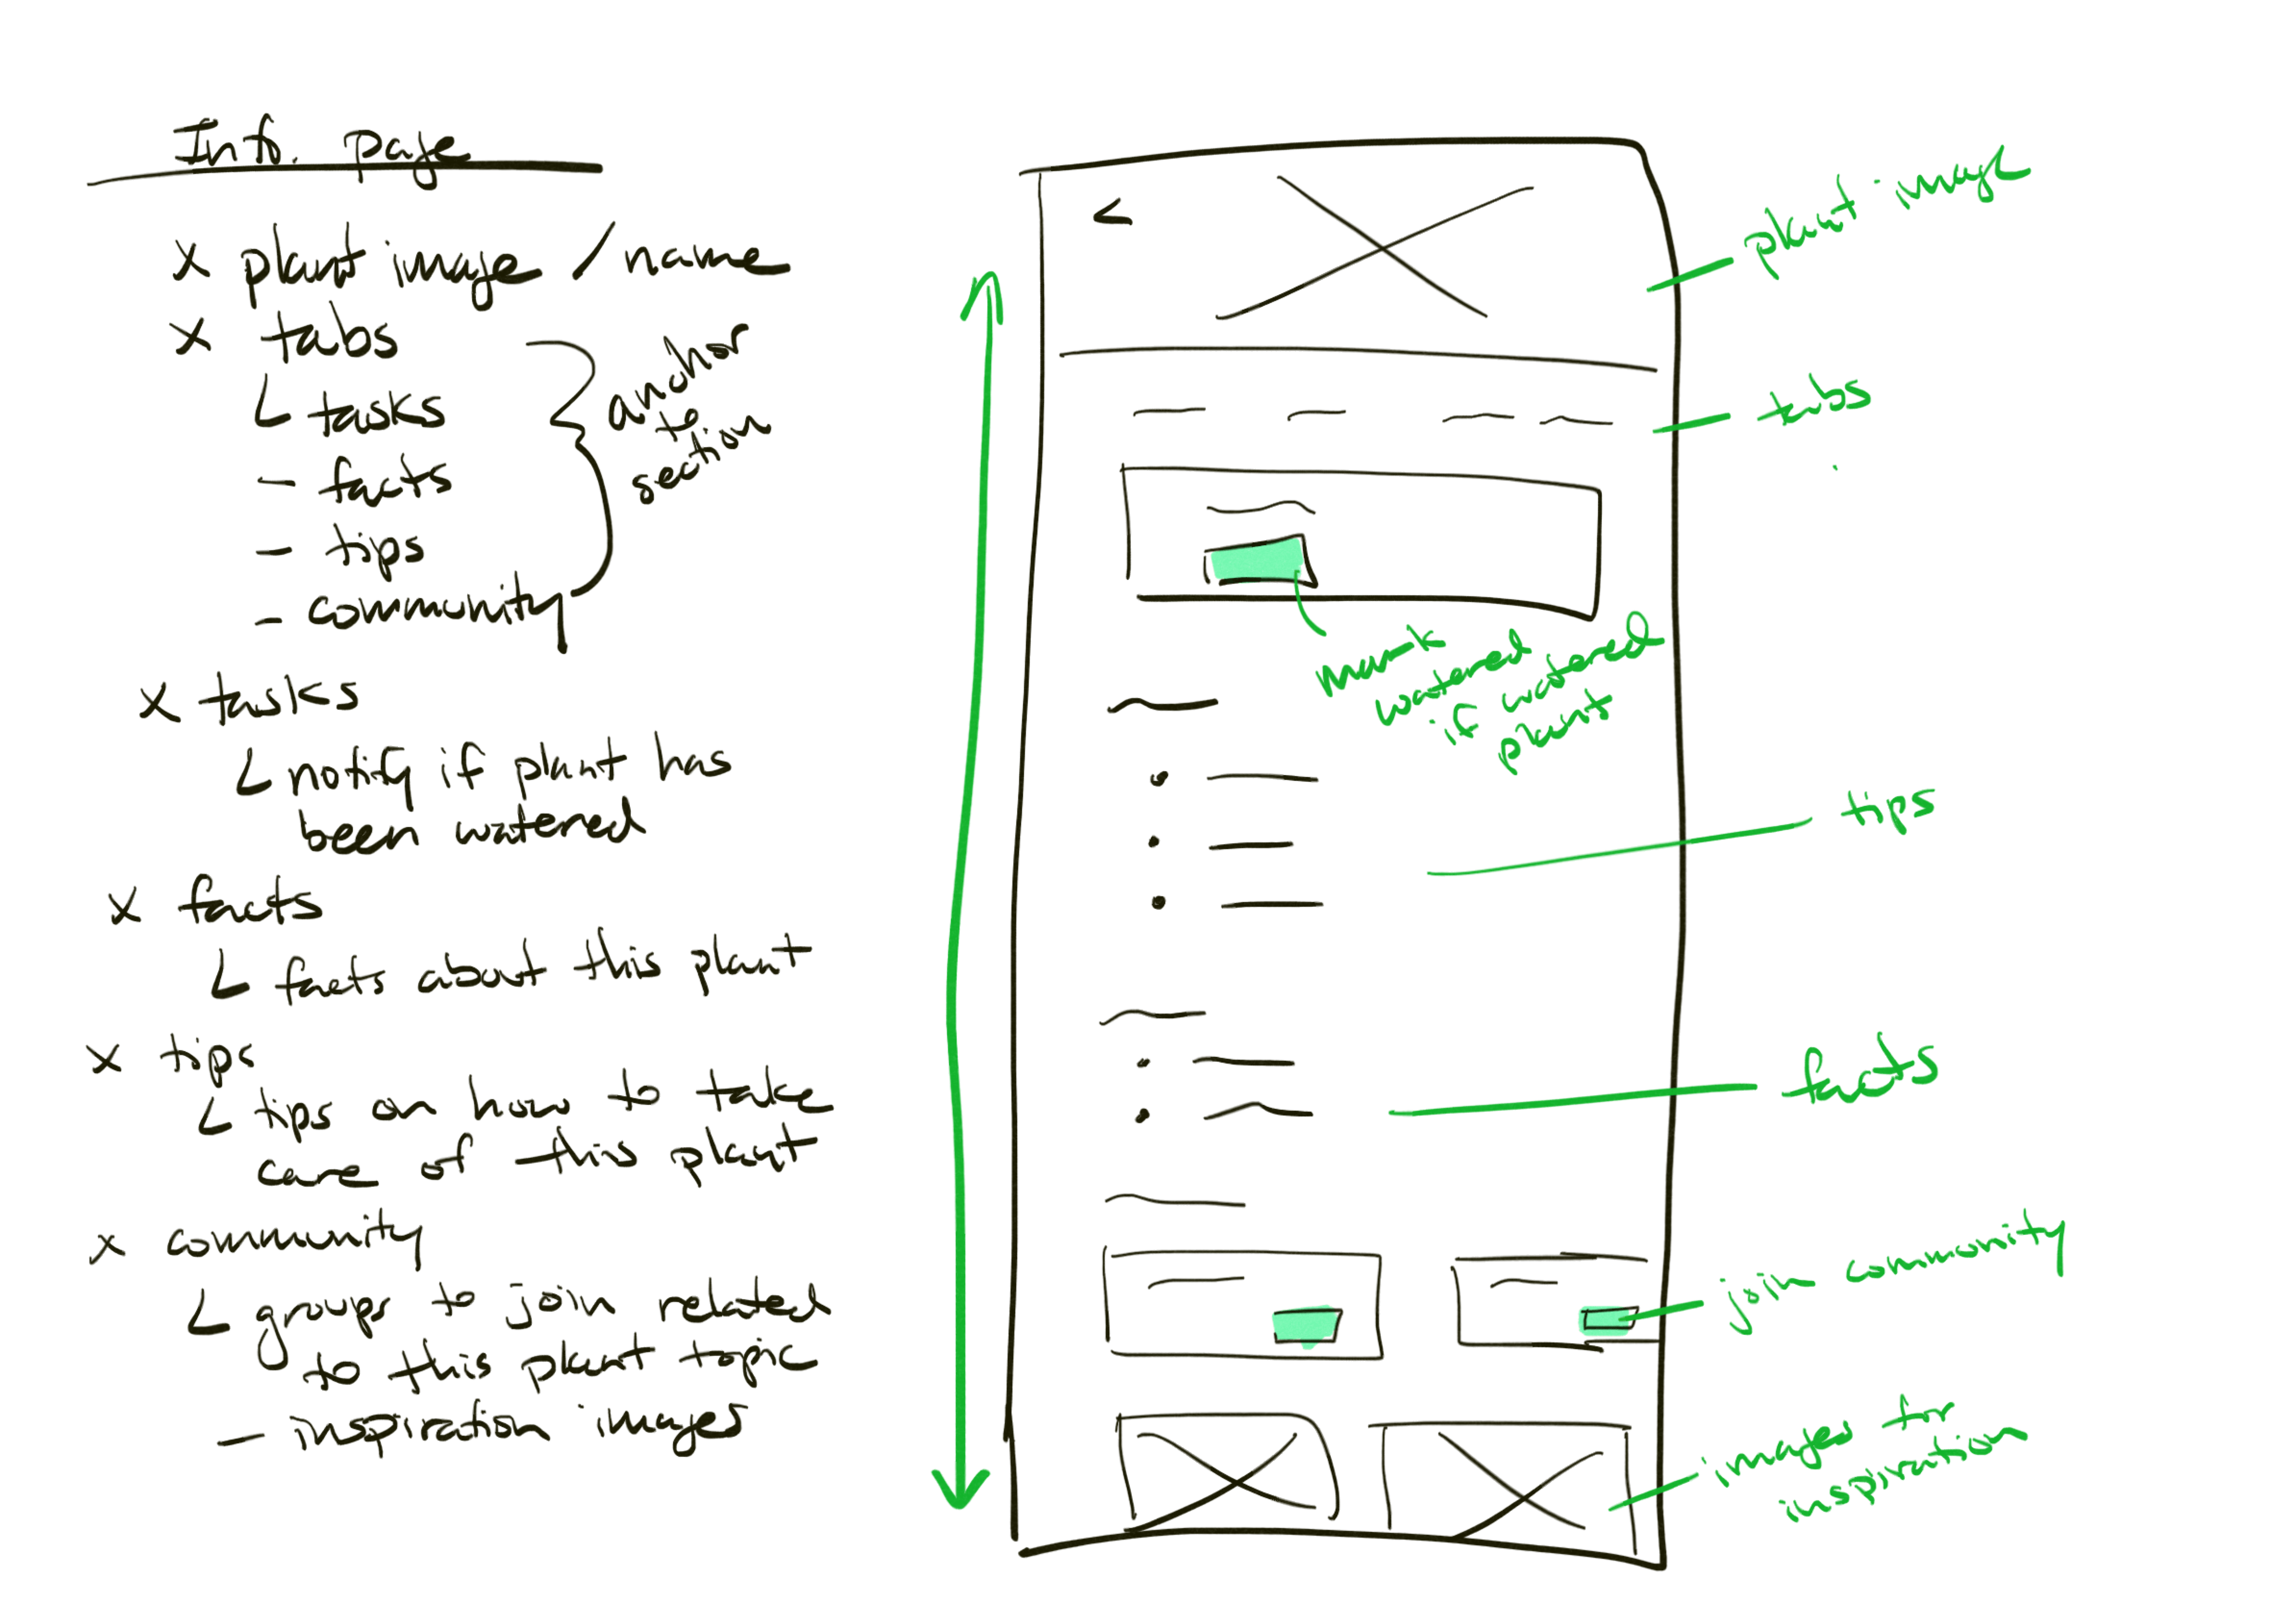 Info. page
x plant image / name
x tabs
└ tasks
- facts
- tips
- community
anchor
to
section
x tasks
└ notify if plant has
been watered
x facts
└ facts about this plant
x tips
└ tips on how to take
care of this plant
x community
└ groups to join related
to this plant topic
- inspiration images
<
plant image
tabs
mark
watered
if watered
plant
tips
facts
join community
images for
inspiration